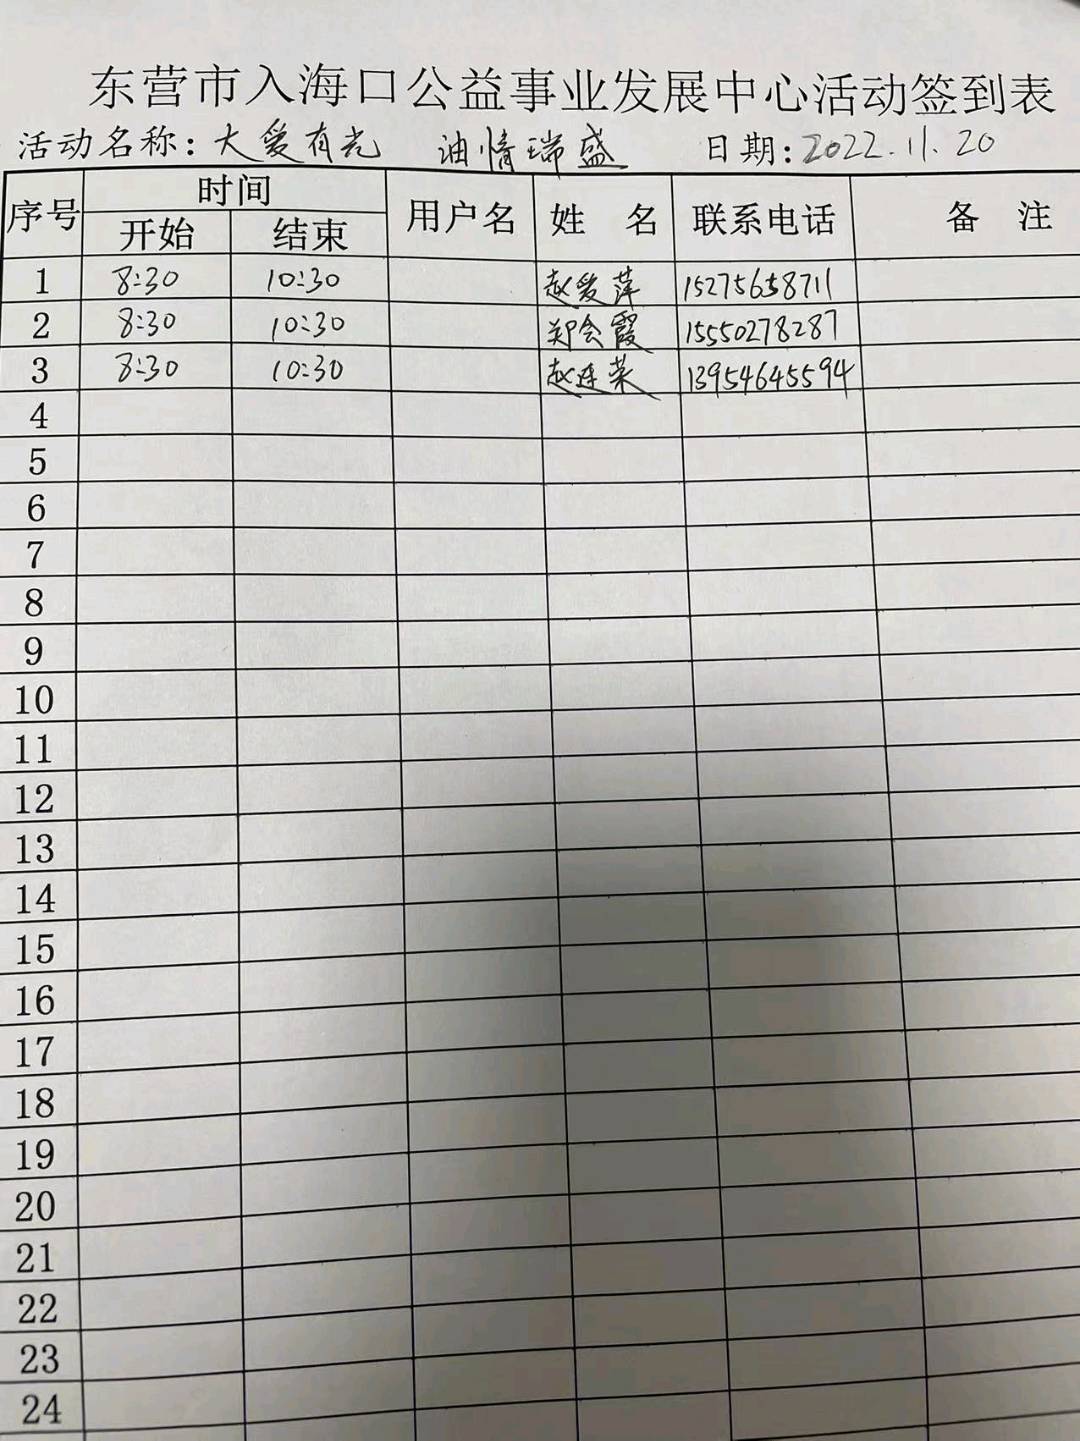 东营市入海口公益事业发展中心活动签到表
活动名称：大爱有光 油情瑞盛 日期：2022.11.20
序号 时间 用户名 姓 名 联系电话 备 注
开始 结束
1 8:30 10:30 赵爱萍 15275658711
2 8:30 10:30 郑会霞 15550278287
3 8:30 10:30 赵连荣 13954645594
4
5
6
7
8
9
10
11
12
13
14
15
16
17
18
19
20
21
22
23
24